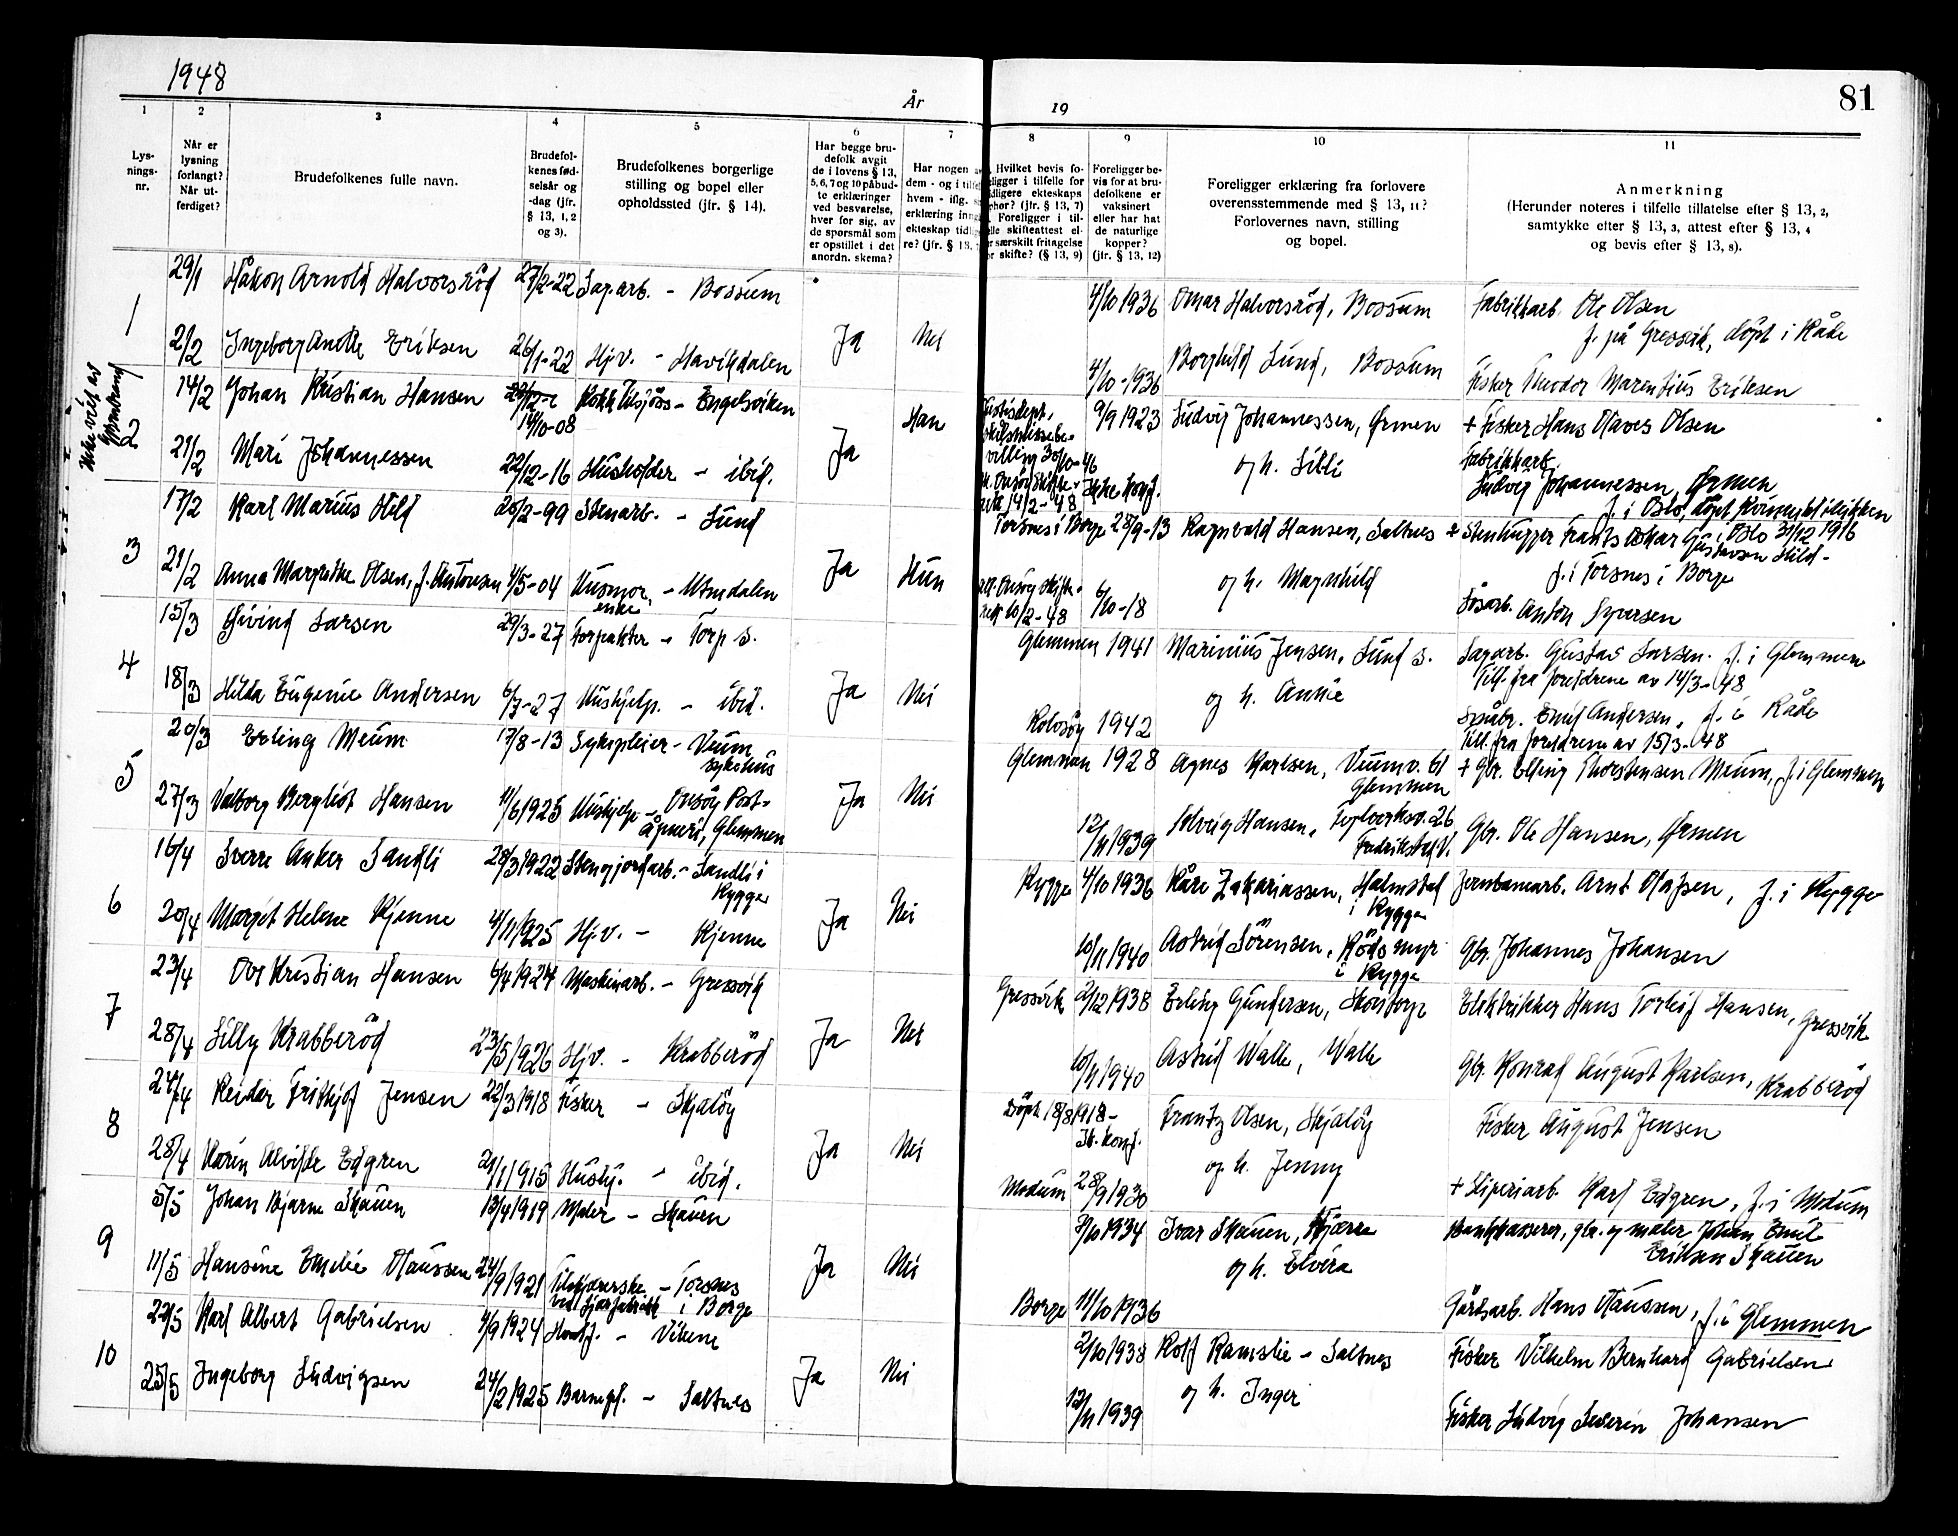 1948
År
19
81
1 2 3 4 5 6 7 8 9 10 11
Lys-
nings-
nr.
Når er
lysning
forlangt?
Når ut-
ferdiget?
Brudefolkenes fulle navn.
Brudefol-
kenes fød-
selsår og
-dag (jfr.
§ 13, 1, 2
og 3).
Brudefolkenes borgerlige
stilling og bopel eller
opholdssted (jfr. § 14).
Har begge bru-
defolk avgit
de i lovens § 13,
5, 6, 7 og 10 påbud-
te erklæringer
ved besvarelse,
hver for sig, av
de spørsmål som
er opstillet i det
anordn. skema?
Har nogen
dem - og i
hvem - iflg.
erklæring
ekteskap
re? (jfr. § 13,
Hvilket bevis fo-
religger i tilfelle for
tidligere ekteskaps
ophør? (jfr. § 13, 7)
Foreligger i til-
felle skifteattest el-
ler særskilt fritagelse
for skifte? (§ 13, 9)
Foreligger be-
vis for at bru-
defolkene er
vaksinert
eller har hat
de naturlige
kopper?
(jfr. § 13, 12)
Foreligger erklæring fra forlovere
overensstemmende med § 13, 11?
Forlovernes navn, stilling
og bopel.
Anmerkning
(Herunder noteres i tilfelle tillatelse efter § 13, 2,
samtykke efter § 13, 3, attest efter § 13, 4
og bevis efter § 13, 8).
1
29/1 Håkon Arnold Halvorsröd 27/2-22 Sag.arb. - Bossum 4/10 1936 Omar Halvorsröd, Bossum Fabrikkarb. Ole Olsen
f. på Gressvik, döpt i Råde
2/2 Ingeborg Anette Eriksen 26/1-22 Hj.v. - Havikdalen Ja Nei 4/10-1936 Borghild Lund, Bossum Fisker Theodor Marentius Eriksen
Ikke viet av
2
14/2 Johan Kristian Hansen 14/10-08 Kokk tilsjøss - Engelsviken Han 9/9 1923 Ludvig Johannessen, Ørmen + Fisker Hans Olaves Olsen
21/2 Mari Johannessen 22/12-16 Husholder - ibid. Ja Ikke konf. og h. Lilli Fabrikkarb.
Ludvig Johannessen, Ørmen
f. i Oslo, döpt
Oslo 31/12 1916
3
17/2 Karl Marius Hild 20/2-99 Stenarb. - Lund Torsnes i Borge 28/9-13 Ragnvald Hansen, Saltnes + Stenhugger Frants Oskar Gustavsen Hild -
f. i Torsnes i Borge
21/2 Anna Margrethe Olsen, f. Antonsen 4/5-04 Husmor, enke - Utendalen Ja Hun 6/10-18 og h. Magnhild Løsarb. Anton Syversen
4
15/3 Øivind Larsen 29/3-27 Forpakter - Torp s. Glemmen 1941 Marinius Jensen, Lund s. Sagarb. Gustav Larsen. f. i Glemmen
Till. fra foreldrene av 14/3-48
18/3 Hilda Eugenie Andersen 6/7-27 Hushjelp. - ibid. Ja Nei 1942 og h. Annie Småbr. Emil Andersen, f. i Råde
Till. fra foreldrene av 15/3-48
5
20/3 Erling Meum 17/8-13 Sykepleier - Veum
sykehus Glemmen 1928 Agnes Karlsen, Veumv. 61
Glemmen + Gbr. Elling Thorstensen Meum, f. i Glemmen
27/3 Valborg Bergliot Hansen 11/6 1925 Hushjelp - Onsøy Post-
åpneri, Glemmen Ja Nei 12/11 1939 Solveig Hansen, Teglverksv. 26
Fredrikstad V. Gbr. Ole Hansen, Ørmen
6
16/4 Sverre Anker Sandli 28/3 1922 Stengjordarb. - Sandli i
Rygge Rygge 4/10 1936 Kåre Zakariassen, Halmstad
i Rygge Jernbanearb. Arnt Olafsen, f. i Rygge
20/4 Margit Helene Kjenne 4/11 1925 Hj.v. - Kjenne Ja Nei 10/11 1940 Astrid Sörensen, Rödsmyr
i Rygge Gbr. Johannes Johansen
7
23/4 Ove Kristian Hansen 6/4 1924 Maskinarb. - Gressvik Gressvik 2/12 1938 Erling Gundersen, Skovtorp Elektrikker Hans Torleif Hansen, Gressvik
28/4 Lilly Krabberöd 23/5 1926 Hj.v. - Krabberöd Ja Nei 10/11 1940 Astrid Walle, Walle Gbr. Konrad August Karlsen, Krabberöd
8
24/4 Reidar Frithjof Jensen 22/3 1918 Fisker - Skjaløy Döpt 18/8 1918 -
Ik. konf. Frantz Olsen, Skjaløy Fisker August Jensen
28/4 Karin Alvilde Edgren 21/1 1915 Hush. - ibid. Ja Nei Modum 28/9 1930 og h. Jenny + Sliperiarb. Karl Edgren, f. i Modum
9
5/5 Johan Bjarne Skauen 13/4 1919 Maler - Skauen 7/10 1934 Ivar Skauen, Kjærre Bankkasserer, gbr. og maler Johan Emil
Eriksen Skauen
11/5 Hansine Emelie Olaussen 24/9 1921 - Torsnes
i Borge Ja Nei Borge 11/10 1936 og h. Elvira Gårdsarb. Hans Olaussen, f. i Glemmen
10
22/5 Karl Albert Gabrielsen 4/9 1924 - Vikene 2/10 1938 Rolf Ramslie - Saltnes Fisker Vilhelm Bernhard Gabrielsen
25/5 Ingeborg Ludvigsen 24/2 1925 Barnepl. - Saltnes Ja Nei 12/11 1939 og h. Inger Fisker Ludvig Severin Johansen